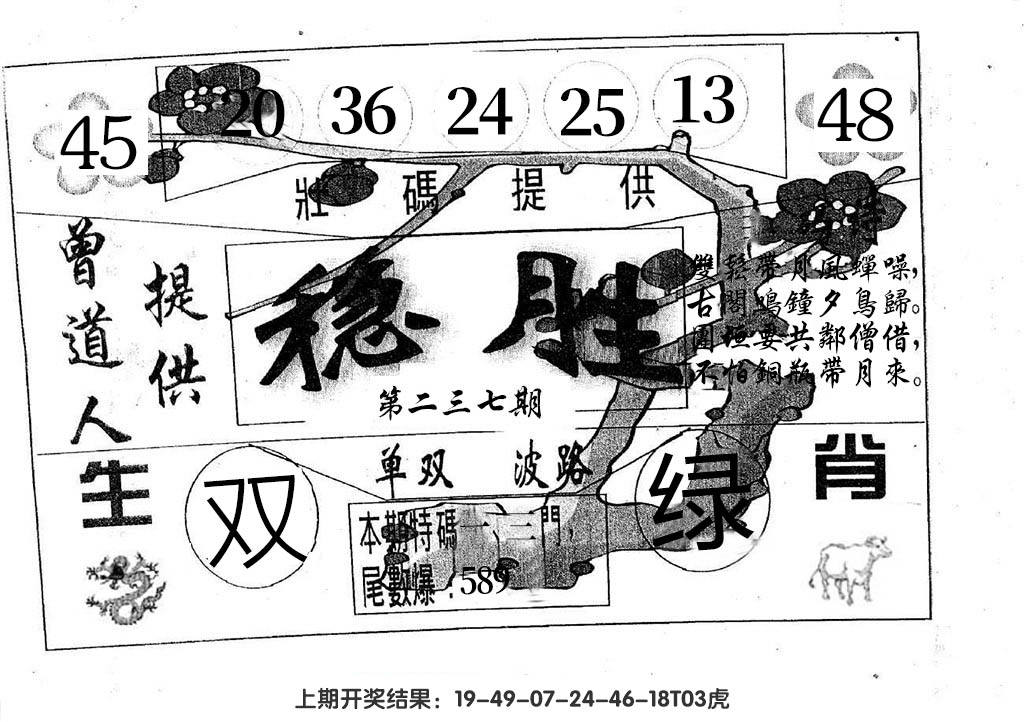 45 20 36 24 25 13 48
壯碼提供
曾道人
提供
稳胜
第二三七期
雙鬆帶月風蟬噪，
古閣鳴鐘夕鳥歸。
圍垣要共鄰僧借，
不怕銅瓶帶月來。
单双 波路
生 双 绿 肖
本期特碼一、三門，
尾數爆：589
上期开奖结果：19-49-07-24-46-18T03虎